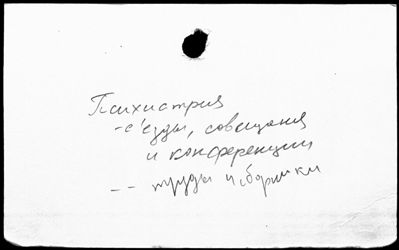 Психиатрия
-с'езды, совещания
и конференции
-- труды и сборники